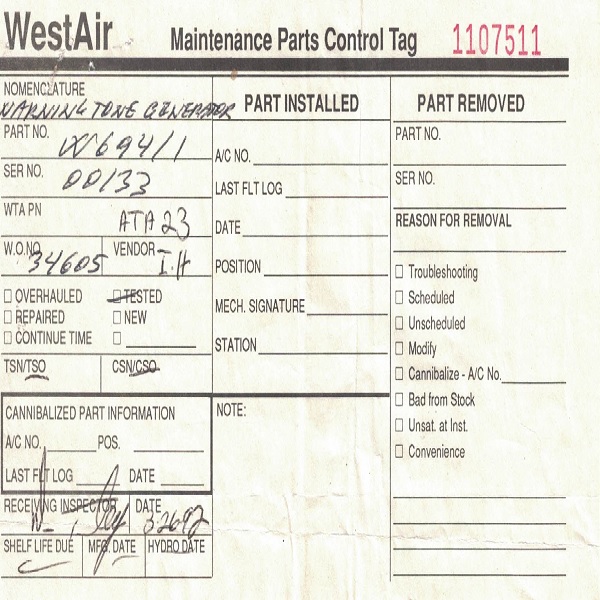 WestAir Maintenance Parts Control Tag 1107511
NOMENCLATURE
WARNING TONE GENERATOR
PART NO. W694/1
SER NO. 00133
WTA PN ATA 23
W.O.NO. 34605 VENDOR I.H
OVERHAULED TESTED
REPAIRED NEW
CONTINUE TIME
TSN/TSO CSN/CSO
CANNIBALIZED PART INFORMATION
A/C NO. POS.
LAST FLT LOG DATE
RECEIVING INSPECTOR DATE
32692
SHELF LIFE DUE MFG. DATE HYDRO DATE
PART INSTALLED
A/C NO.
LAST FLT LOG
DATE
POSITION
MECH. SIGNATURE
STATION
NOTE:
PART REMOVED
PART NO.
SER NO.
REASON FOR REMOVAL
Troubleshooting
Scheduled
Unscheduled
Modify
Cannibalize - A/C No.
Bad from Stock
Unsat. at Inst.
Convenience